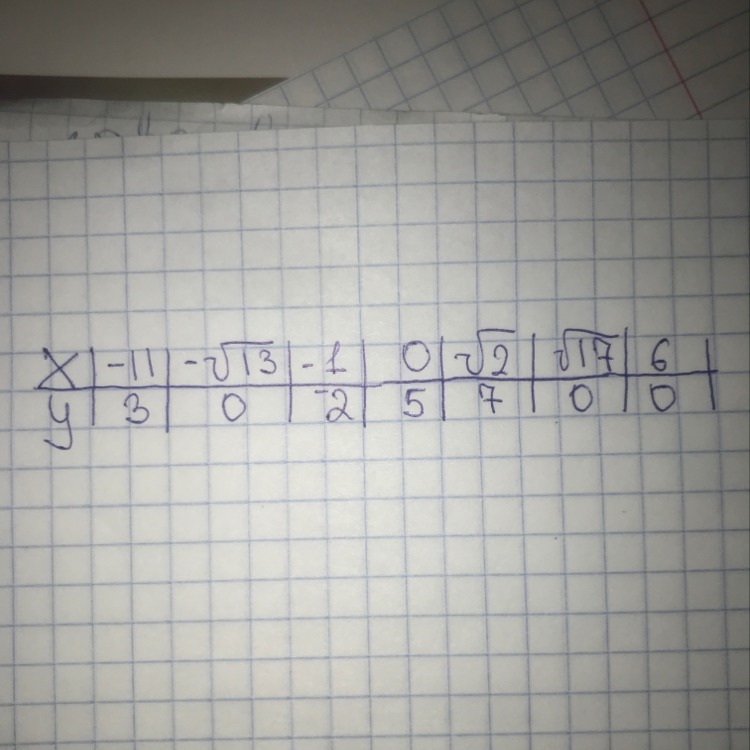 x | -11 | -√13 | -1 | 0 | √2 | √17 | 6 |
y | 3 | 0 | -2 | 5 | 7 | 0 | 0 |